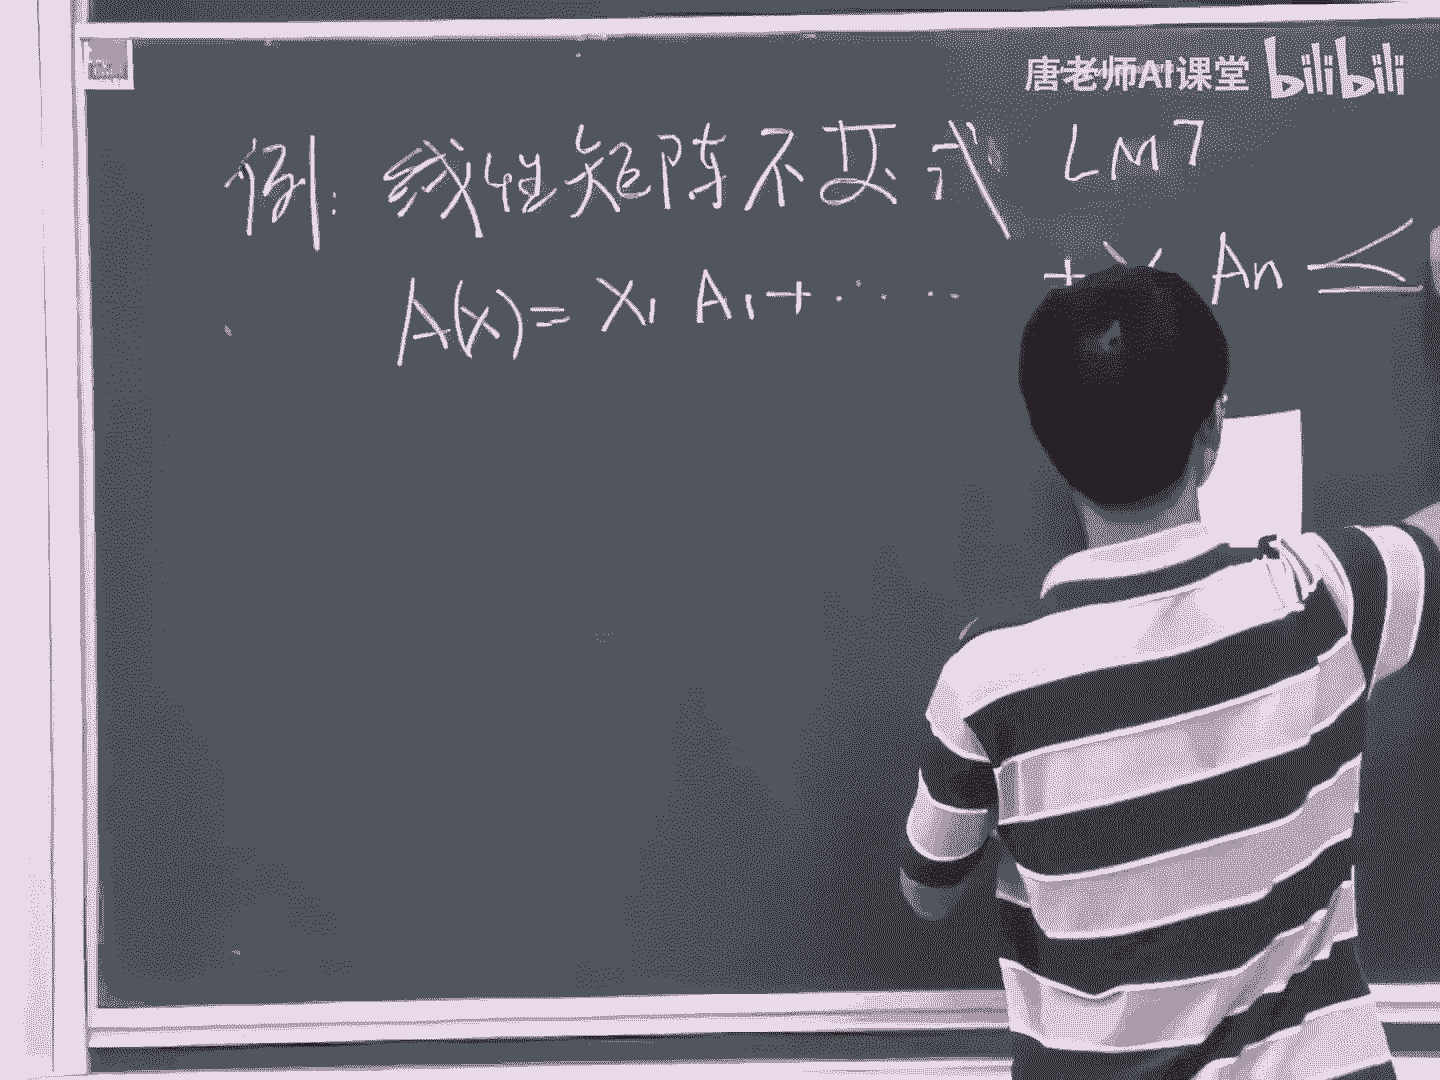 唐老师AI课堂 bilibili
例: 线性矩阵不等式 LMI
A(x)= x₁ A₁+ ····· + An ≤